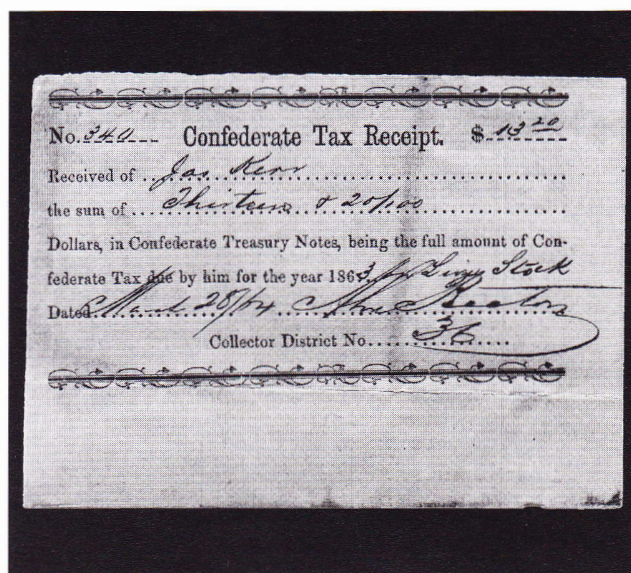 No. 340 Confederate Tax Receipt. $ 13 20
Received of Jas Kerr
the sum of Thirteen & 20/100
Dollars, in Confederate Treasury Notes, being the full amount of Con-
federate Tax due by him for the year 1863 for Live Stock
Dated 28/64
Collector District No. 36